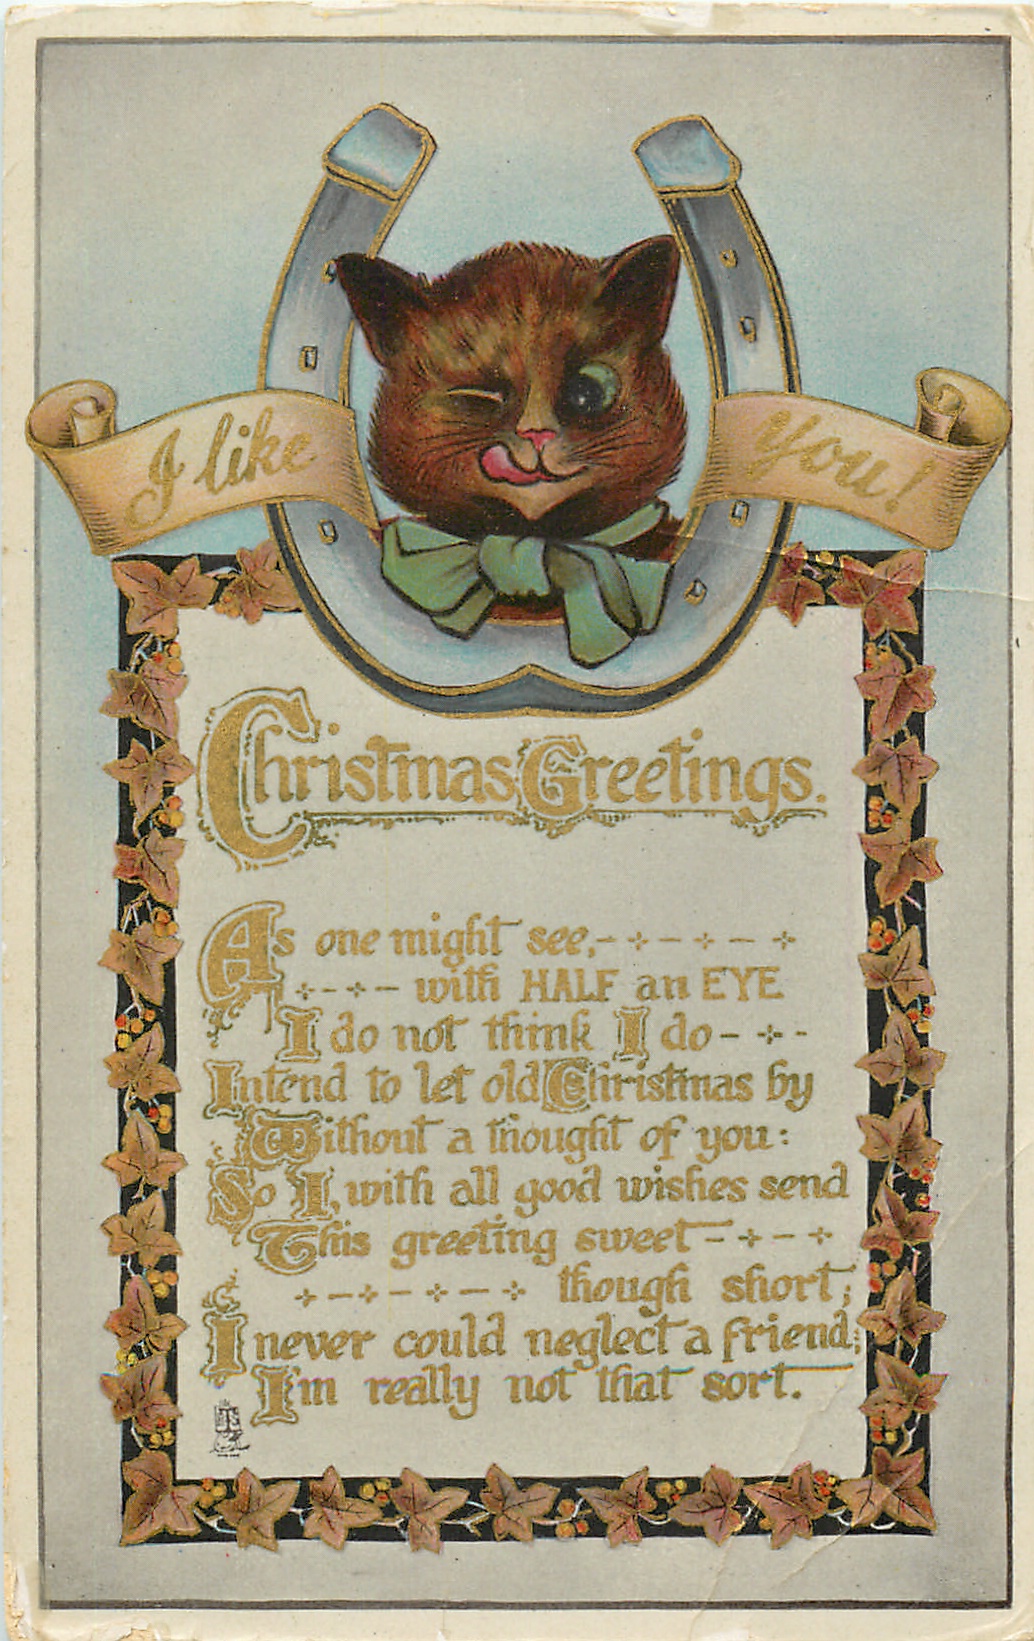 I like You!
Christmas Greetings.
As one might see,
with HALF an EYE
I do not think I do
Intend to let old Christmas by
Without a thought of you:
So I, with all good wishes send
This greeting sweet
though short;
I never could neglect a friend;
I'm really not that sort.